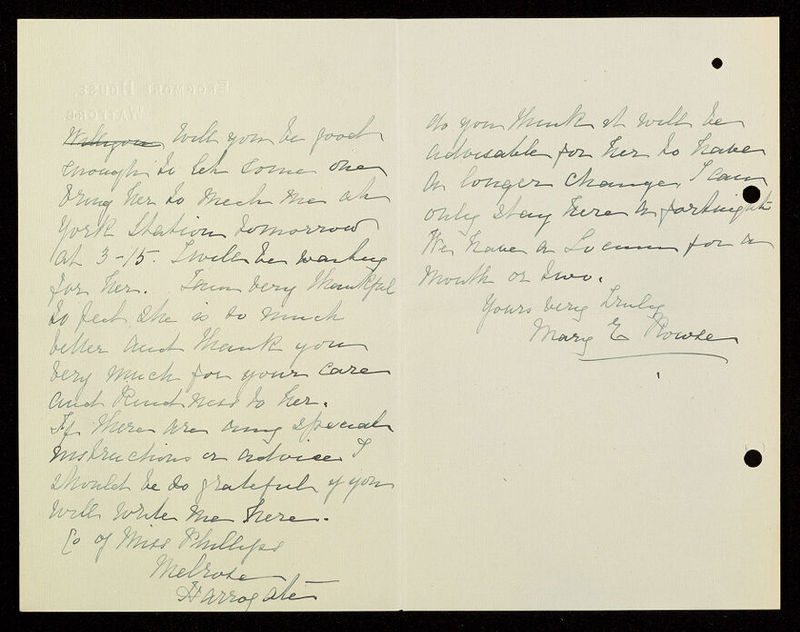 Will you Will you be good
enough to let some one
bring her to meet me at
York Station tomorrow
at 3-15. I will be waiting
for her. I am very thankful
to feel she is so much
better and thank you
very much for your care
and kindness to her.
If there are any special
instructions or advice I
should be so grateful if you
will write me here.
c/o of Miss Phillips
Melrose
Harrogate
do you think it will be
advisable for her to have
a longer change, I can
only stay here a fortnight
We have a Locum for a
month or two.
Yours very truly
Mary E Rowse